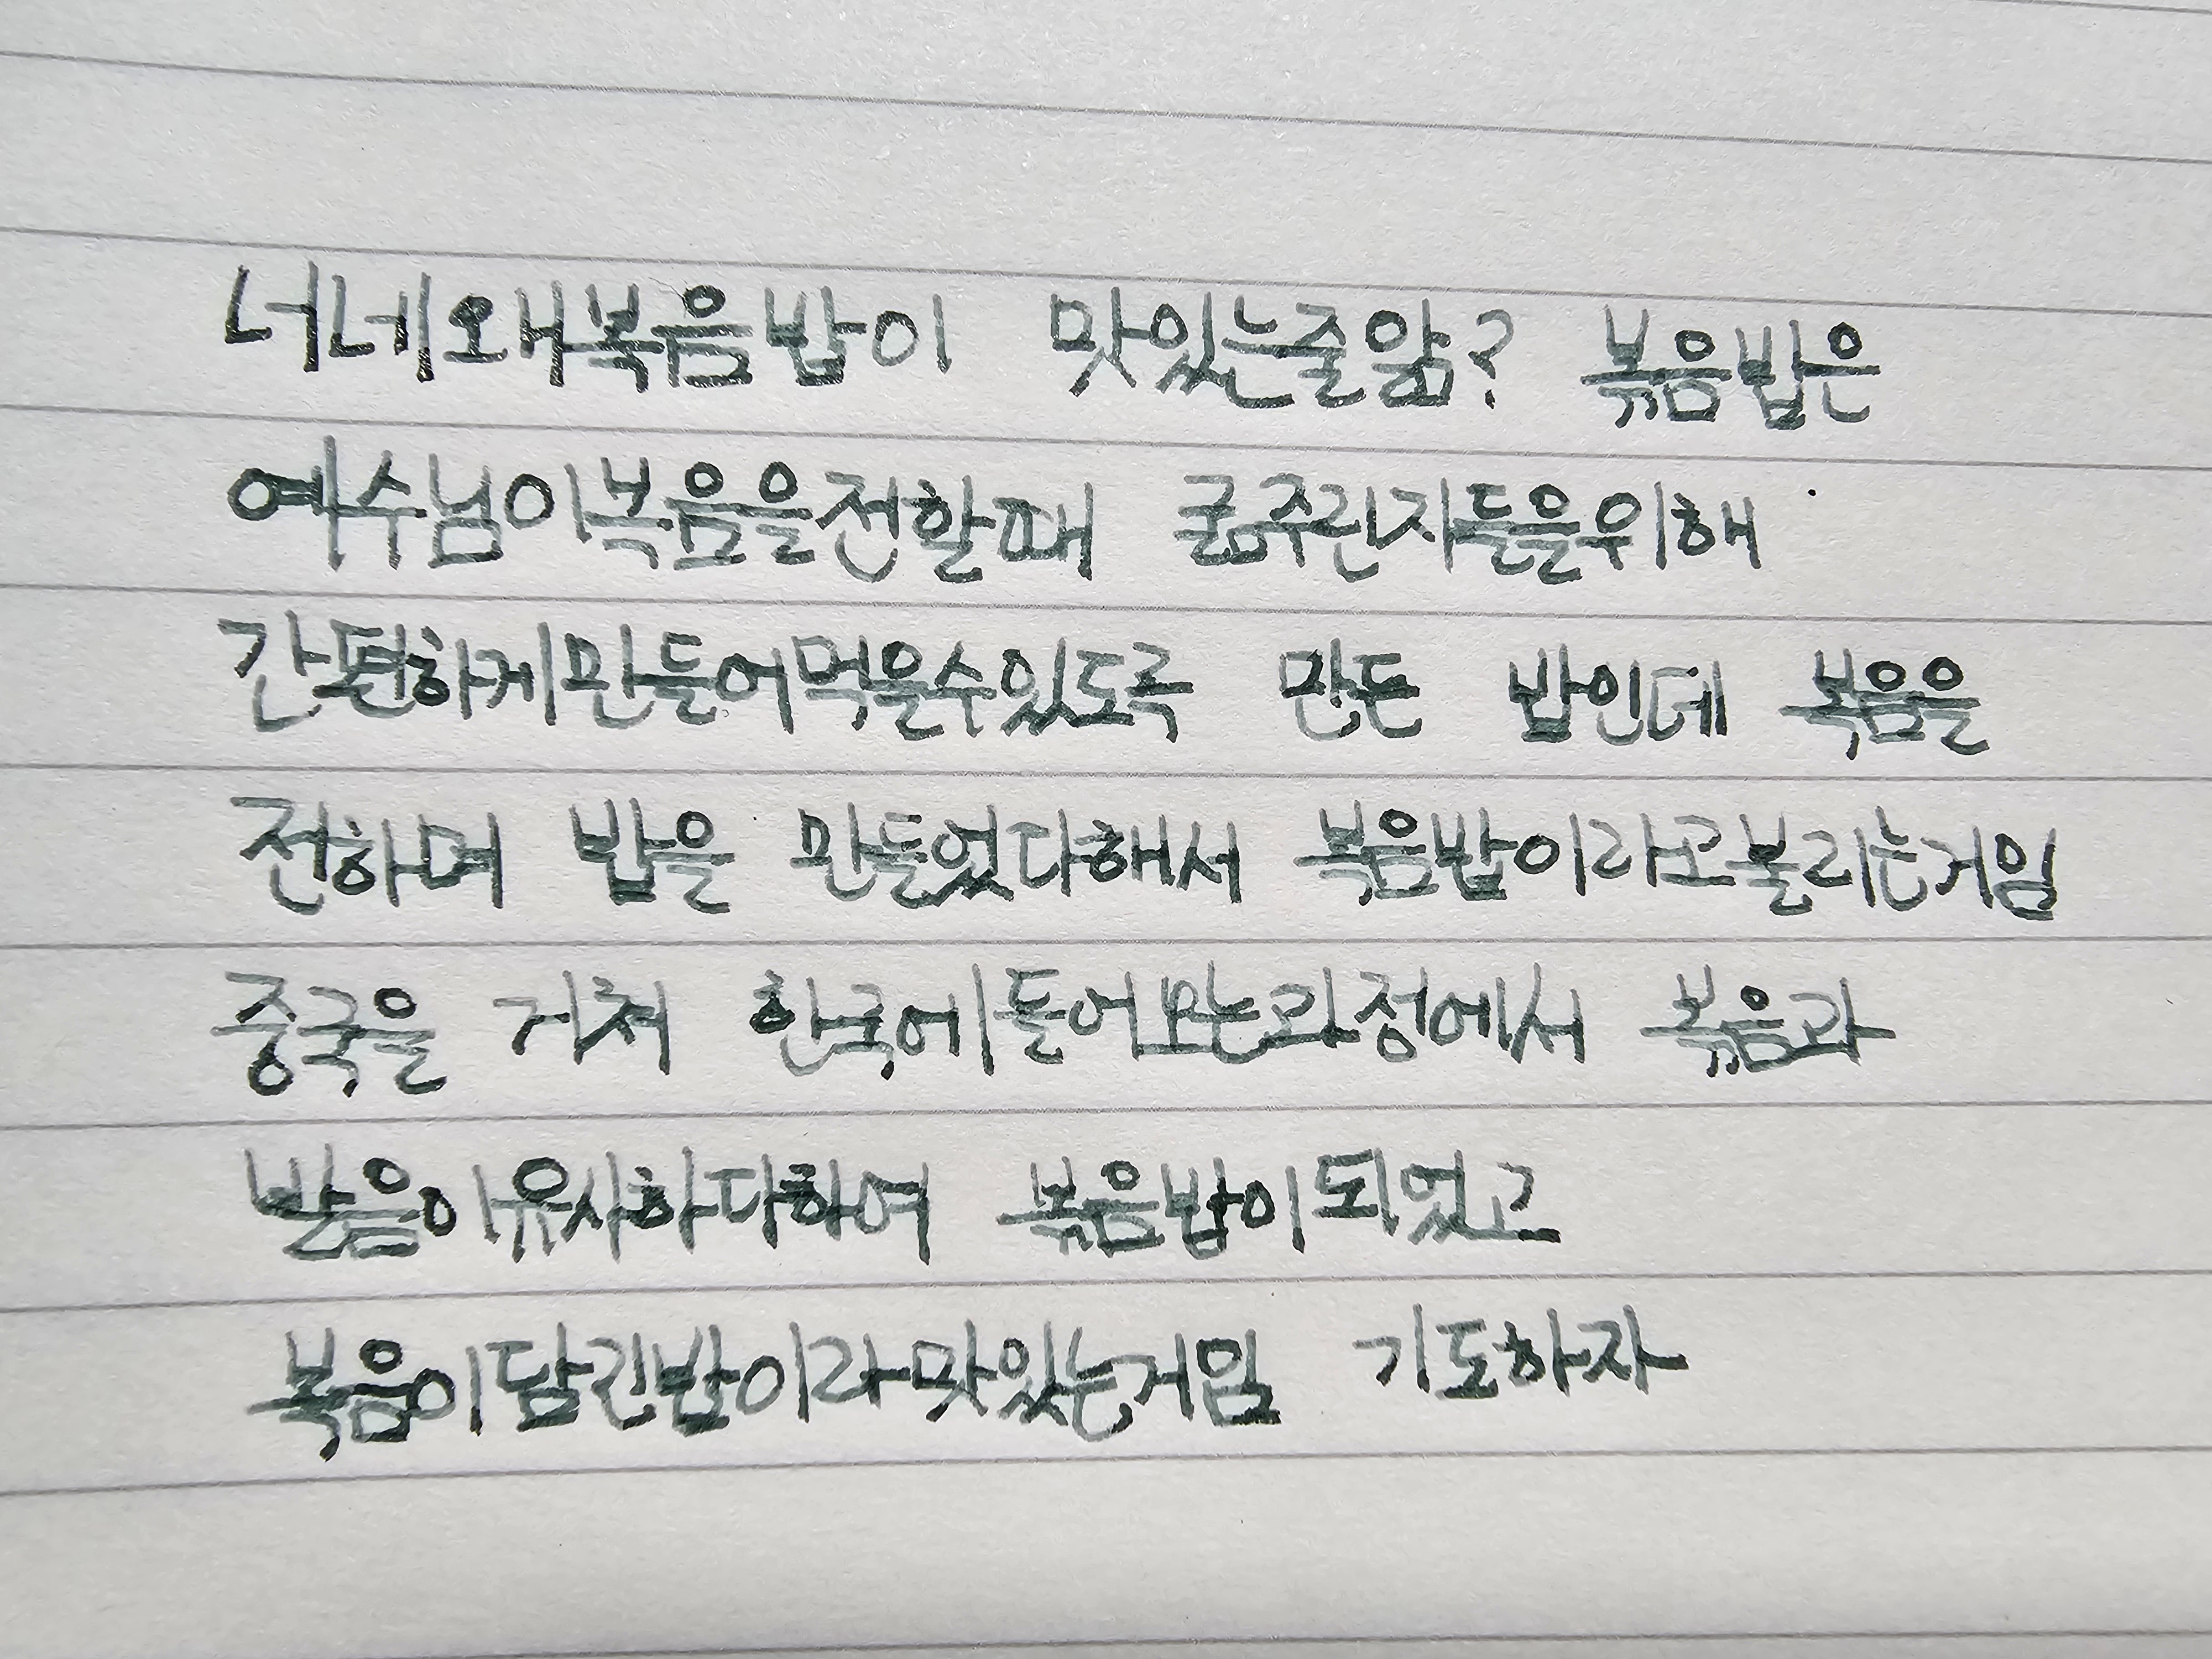 너네왜복음밥이 맛있는줄앎? 볶음밥은
예수님이복음을전할때 굶주린자들을위해
간편하게만들어먹을수있도록 만든 밥인데 복음을
전하며 밥을 만들었다해서 복음밥이라고불리는거임
중국을 거쳐 한국에들어오는과정에서 볶음과
발음이유사하다하여 볶음밥이되었고
복음이담긴밥이라맛있는거임 기도하자